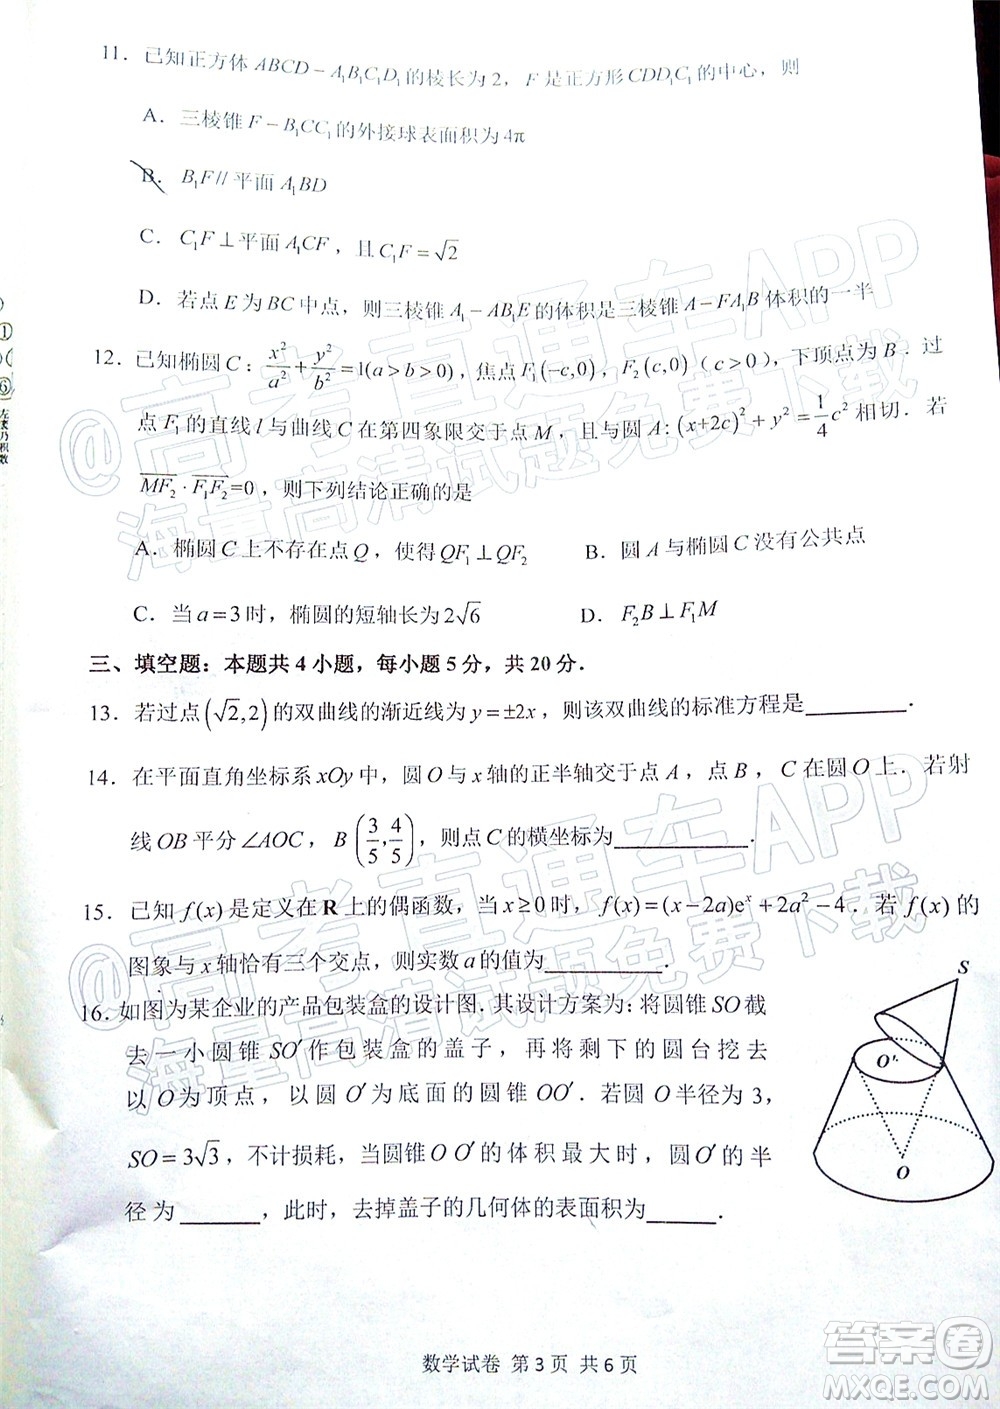 11．已知正方体 ABCD－A₁B₁C₁D₁ 的棱长为 2，F 是正方形 CDD₁C₁ 的中心，则
A．三棱锥 F－B₁CC₁ 的外接球表面积为 4π
B．B₁F // 平面 A₁BD
C．C₁F⊥平面 A₁CF，且 C₁F=√2
D．若点 E 为 BC 中点，则三棱锥 A₁－AB₁E 的体积是三棱锥 A－FA₁B 体积的一半
12．已知椭圆 C：x²/a²+y²/b²=1(a>b>0)，焦点 F₁(−c,0)，F₂(c,0)（c>0），下顶点为 B．过
点 F₁ 的直线 l 与曲线 C 在第四象限交于点 M，且与圆 A：(x+2c)²+y²=1/4c² 相切．若
MF₂·F₁F₂=0，则下列结论正确的是
A．椭圆 C 上不存在点 Q，使得 QF₁⊥QF₂ B．圆 A 与椭圆 C 没有公共点
C．当 a=3 时，椭圆的短轴长为 2√6 D．F₂B⊥F₁M
三、填空题：本题共 4 小题，每小题 5 分，共 20 分．
13．若过点(√2,2)的双曲线的渐近线为 y=±2x，则该双曲线的标准方程是________．
14．在平面直角坐标系 xOy 中，圆 O 与 x 轴的正半轴交于点 A，点 B，C 在圆 O 上．若射
线 OB 平分∠AOC，B(3/5,4/5)，则点 C 的横坐标为________．
15．已知 f(x) 是定义在 R 上的偶函数，当 x≥0 时，f(x)=(x−2a)eˣ+2a²−4．若 f(x) 的
图象与 x 轴恰有三个交点，则实数 a 的值为________．
16．如图为某企业的产品包装盒的设计图．其设计方案为：将圆锥 SO 截
去一小圆锥 SO′ 作包装盒的盖子，再将剩下的圆台挖去
以 O 为顶点，以圆 O′ 为底面的圆锥 OO′．若圆 O 半径为 3，
SO=3√3，不计损耗，当圆锥 O O′ 的体积最大时，圆 O′ 的半
径为______，此时，去掉盖子的几何体的表面积为______．
S
O′
O
数学试卷 第 3 页 共 6 页
①
⑥
@高考直通车APP
海量高清试题免费下载
@高考直通车APP
海量高清试题免费下载
答案圈
MXQE.COM